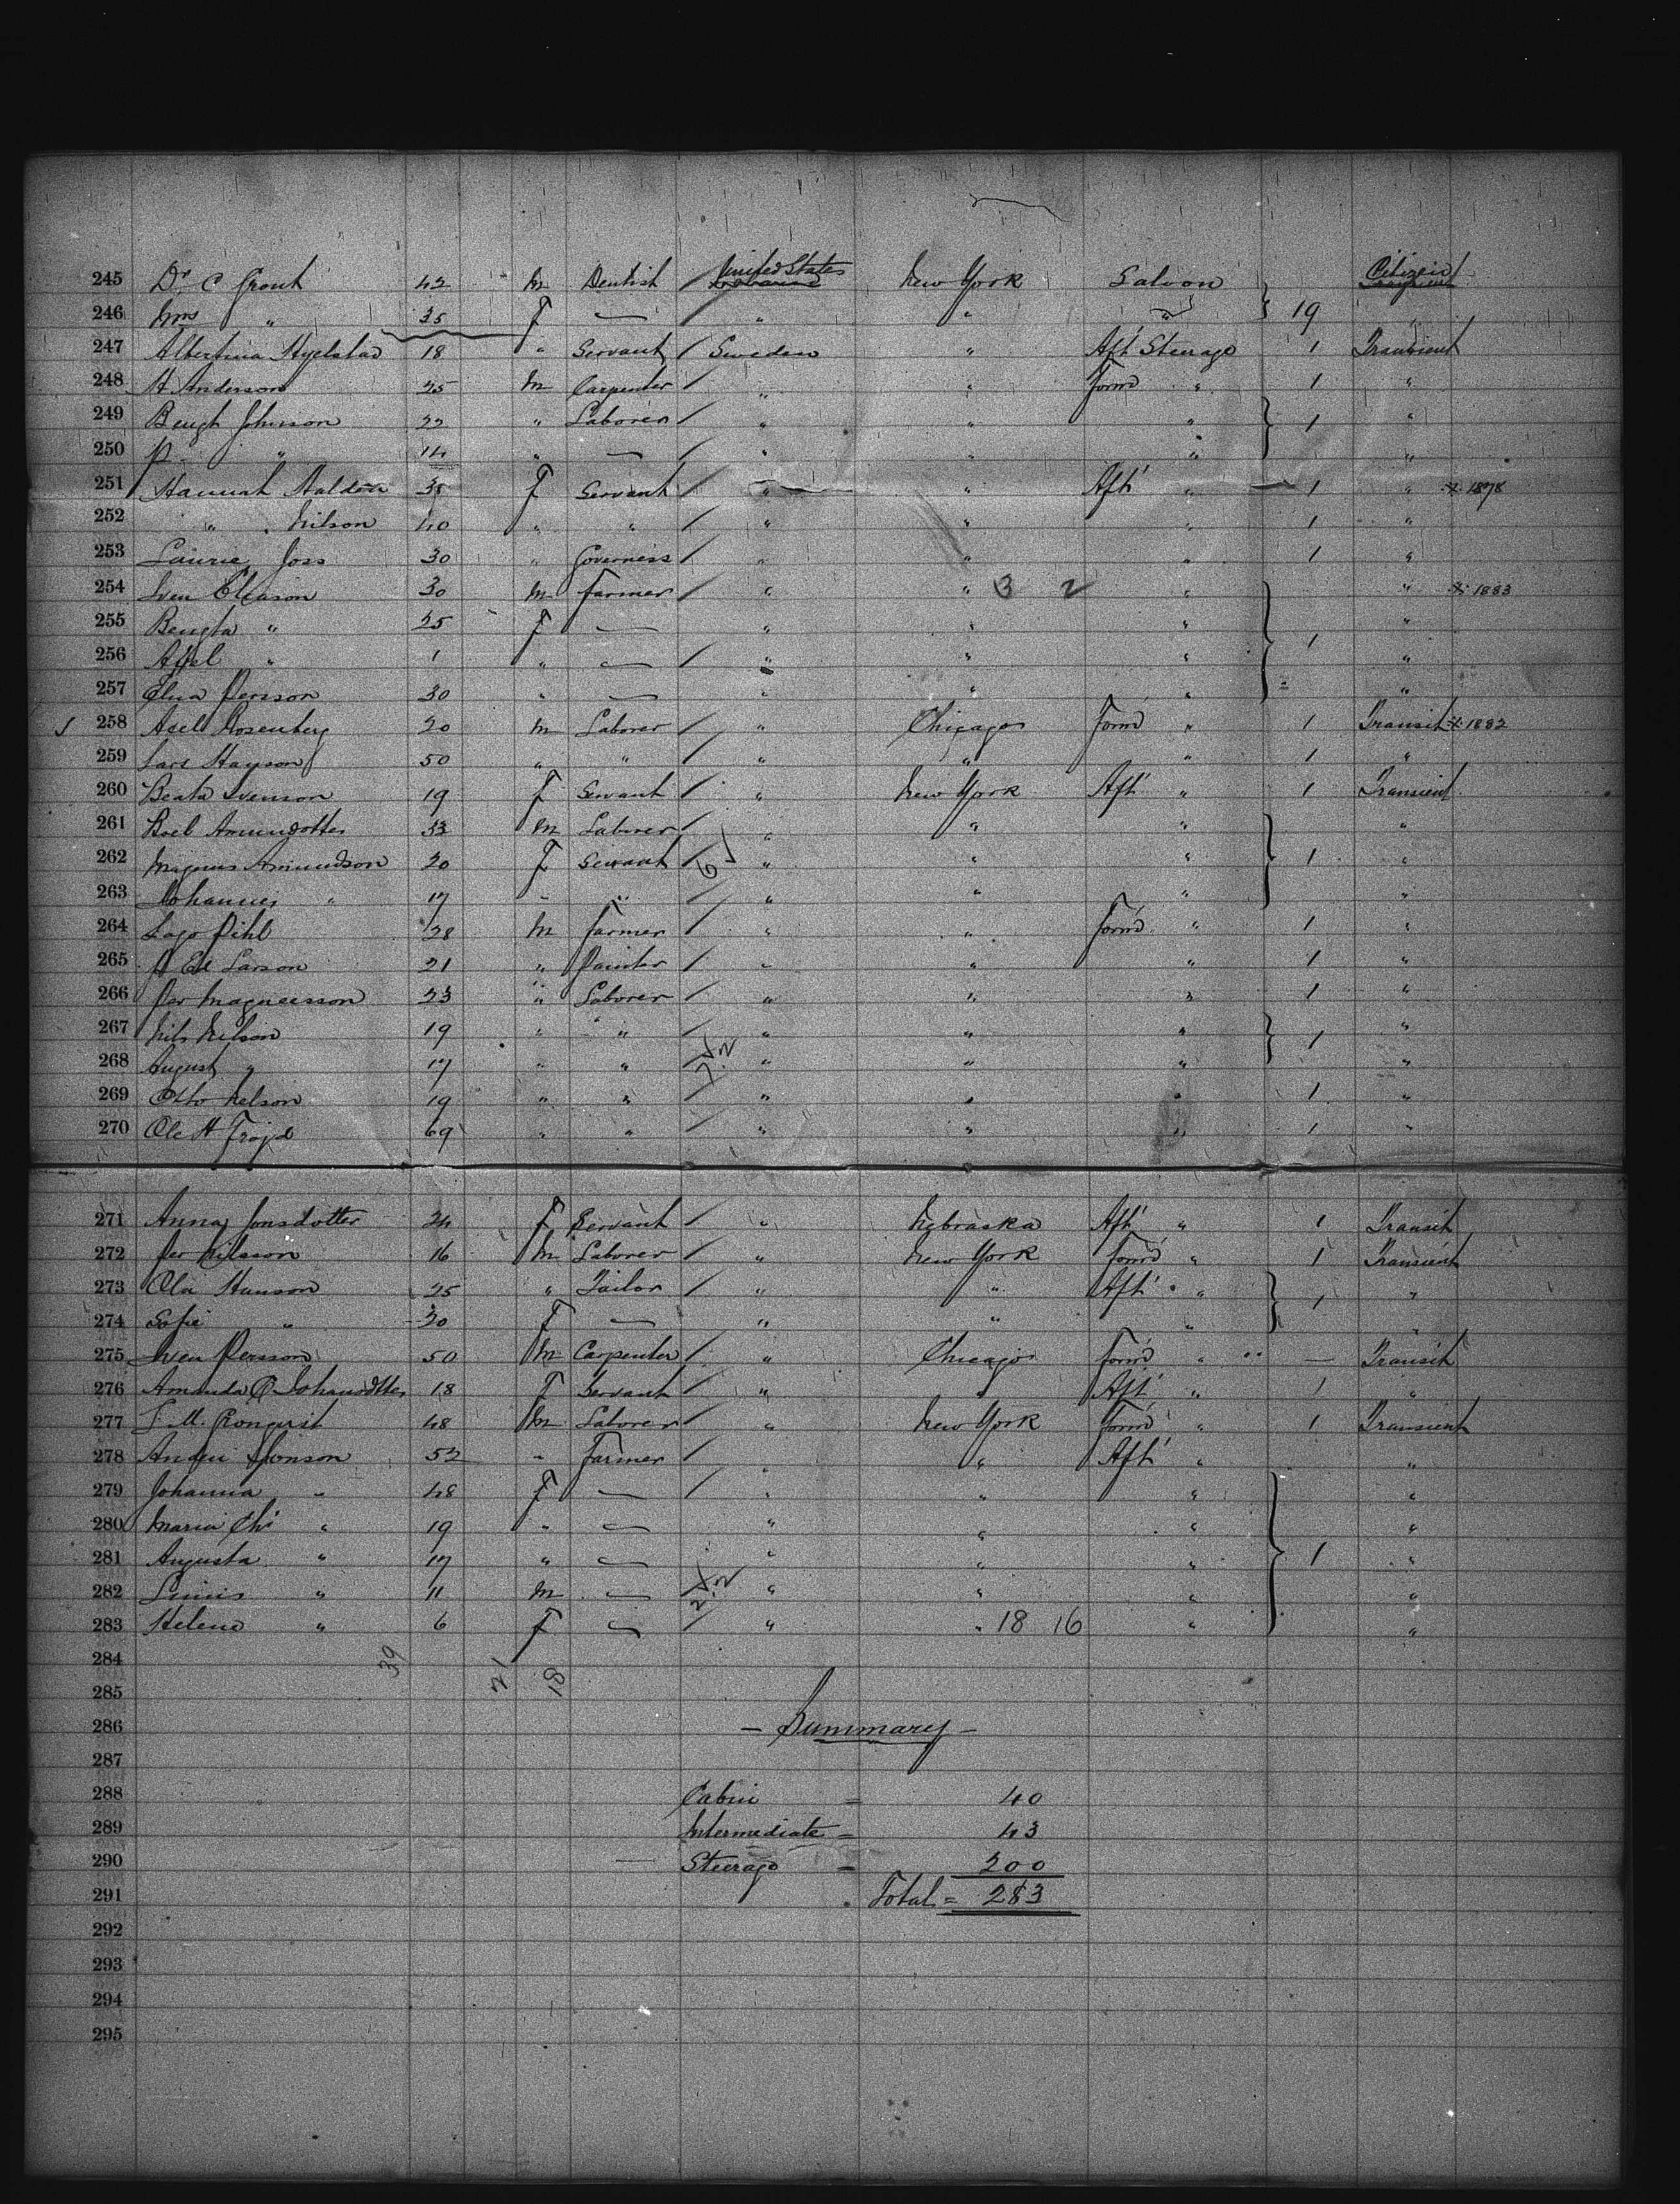 245 Dr C Grout 42 m Dentist / United States New York Saloon Citizen
246 Mrs " 35 f — / " " " } 19 "
247 Albertina Hyelstad 18 " Servant / Sweden " Aft Steerage 1 Transient
248 H Anderson 25 m Carpenter / " " Forrd " 1 "
249 Bengt Johnson 22 " Laborer / " " " } 1 "
250 P " 14 " — / " " " "
251 Hannah 35 f Servant / " " Aft " 1 " x 1878
252 " Nilson 40 " " / " " " 1 "
253 Laurie Joss 30 " Governess / " " " 1 "
254 Sven 30 m Farmer / " " 3 2 " " x 1883
255 Bengta " 25 f — " " " "
256 " 1 " — / " " " } 1 "
257 Elna Persson 30 " — " " " "
258 Axel Rosenberg 20 m Laborer / " Chicago Forrd " 1 Transit x 1882
259 Lars Hanson 50 " " / " " " 1 "
260 Beata Svenson 19 f Servant / " New York Aft " 1 Transient
261 Boel Amundotter 33 m Laborer / " " " "
262 Magnus Amundson 20 f Servant / 6 " " " } 1 "
263 Johannes " 17 " " " " " "
264 Lago Pihl 28 m Farmer / " " Forrd " 1 "
265 P Ed Larson 21 " Painter / " " " 1 "
266 Per Magnusson 23 " Laborer / " " " 1 "
267 Nils Nelson 19 " " / " " " } 1 "
268 August " 17 " " " " " "
269 Otto Nelson 19 " " / " " " 1 "
270 Ole H Frojd 69 " " / " " " 1 "
271 Anna Jonsdotter 24 f Servant / " Nebraska Aft " 1 Transit
272 Per Nilsson 16 m Laborer / " New York Forrd " 1 Transient
273 Ola Hanson 25 " Tailor / " " Aft " } 1 "
274 Sofie " 30 f — " " " "
275 Sven Persson 50 m Carpenter / " Chicago Forrd " — Transit
276 Amanda C Johansdotter 18 f Servant / " " Aft " 1 "
277 L. M. Cronquist 48 m Laborer / " New York Forrd " 1 Transient
278 Jonson 52 " Farmer / " " Aft " "
279 Johanna " 48 f — / " " " "
280 Maria Chr " 19 " — " " " "
281 Augusta " 17 " — " " " } 1 "
282 " 11 m — " " " "
283 Helena " 6 f — / " " 18 16 " "
284 39 21 18
285
286 - Summary -
287
288 Cabin = 40
289 Intermediate = 43
290 Steerage = 200
291 Total = 283
292
293
294
295